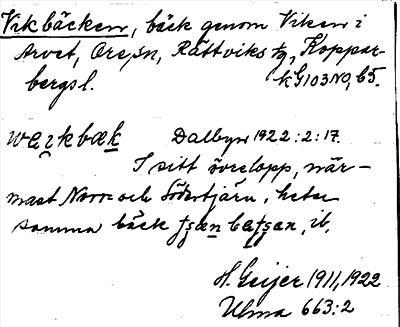 Vikbäcken, bäck genom Viken i
Arvet, Ore sn, Rättviks tg, Koppar-
bergs l. kG103NO, 65.
Dalbyn 1922:2:17.
I sitt övre lopp, när-
mast Norr- och Södertjärn, heter
samma bäck ib.
H. Geijer 1911, 1922
Ulma 663:2